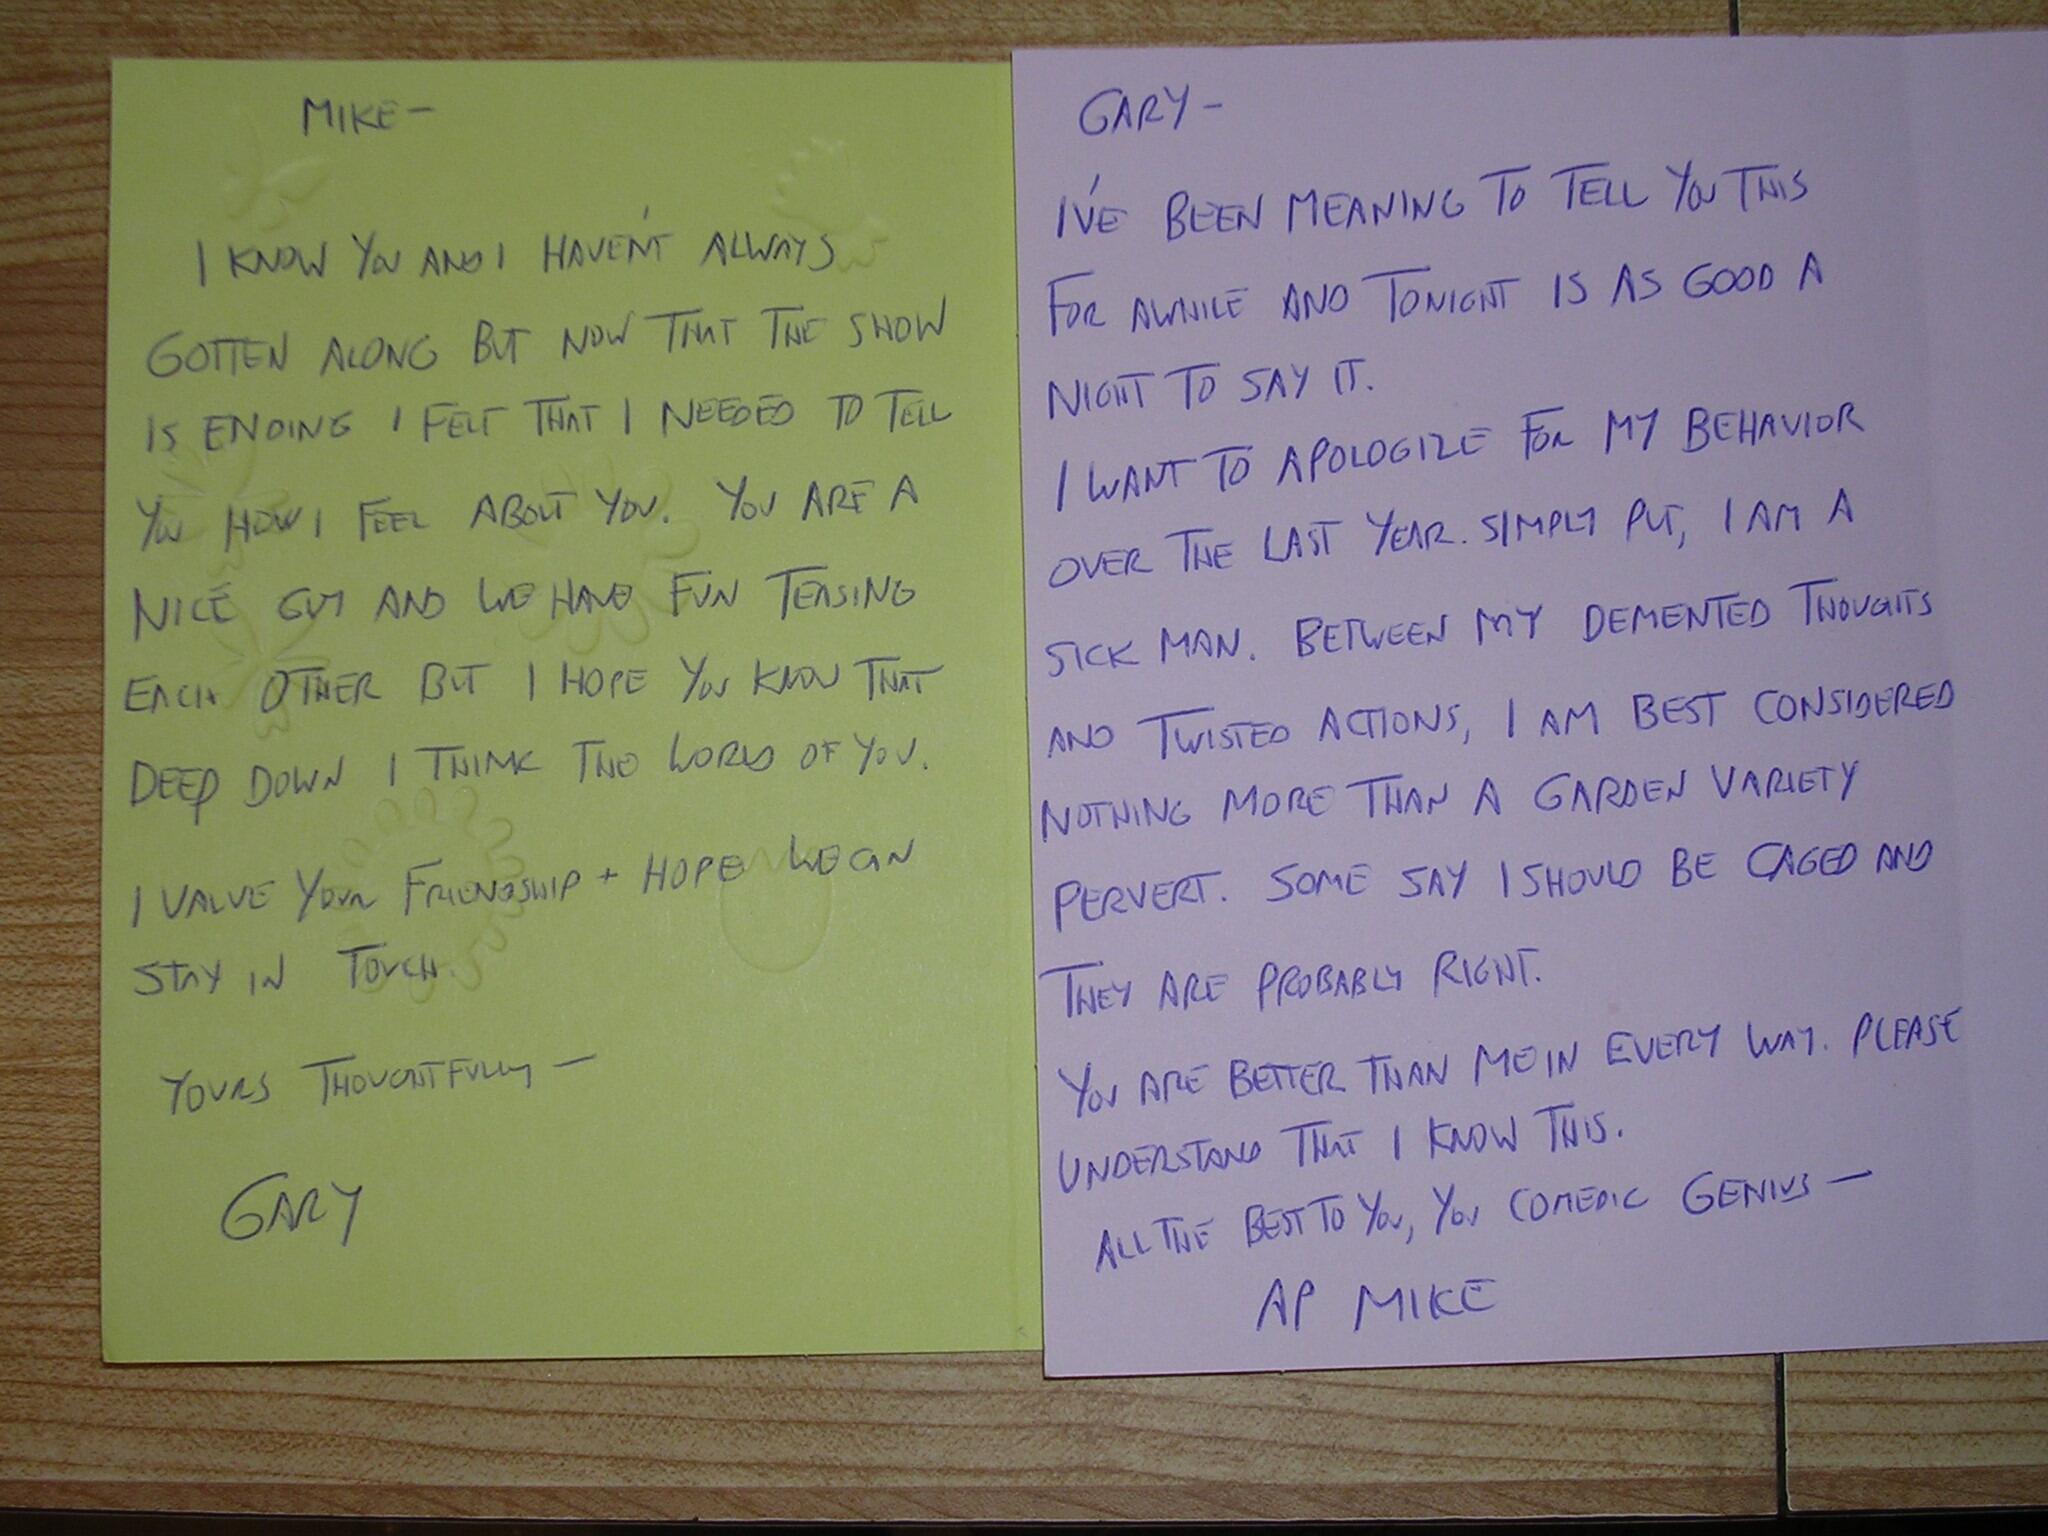 MIKE—
I KNOW YOU AND I HAVEN'T ALWAYS
GOTTEN ALONG BUT NOW THAT THE SHOW
IS ENDING I FELT THAT I NEEDED TO TELL
YOU HOW I FEEL ABOUT YOU. YOU ARE A
NICE GUY AND WE HAVE FUN TEASING
EACH OTHER BUT I HOPE YOU KNOW THAT
DEEP DOWN I THINK THE WORLD OF YOU.
I VALUE YOUR FRIENDSHIP + HOPE WE CAN
STAY IN TOUCH.
YOURS THOUGHTFULLY —
GARY
GARY -
I'VE BEEN MEANING TO TELL YOU THIS
FOR AWHILE AND TONIGHT IS AS GOOD A
NIGHT TO SAY IT.
I WANT TO APOLOGIZE FOR MY BEHAVIOR
OVER THE LAST YEAR. SIMPLY PUT, I AM A
SICK MAN. BETWEEN MY DEMENTED THOUGHTS
AND TWISTED ACTIONS, I AM BEST CONSIDERED
NOTHING MORE THAN A GARDEN VARIETY
PERVERT. SOME SAY I SHOULD BE CAGED AND
THEY ARE PROBABLY RIGHT.
YOU ARE BETTER THAN ME IN EVERY WAY. PLEASE
UNDERSTAND THAT I KNOW THIS.
ALL THE BEST TO YOU, YOU COMEDIC GENIUS —
AP MIKE